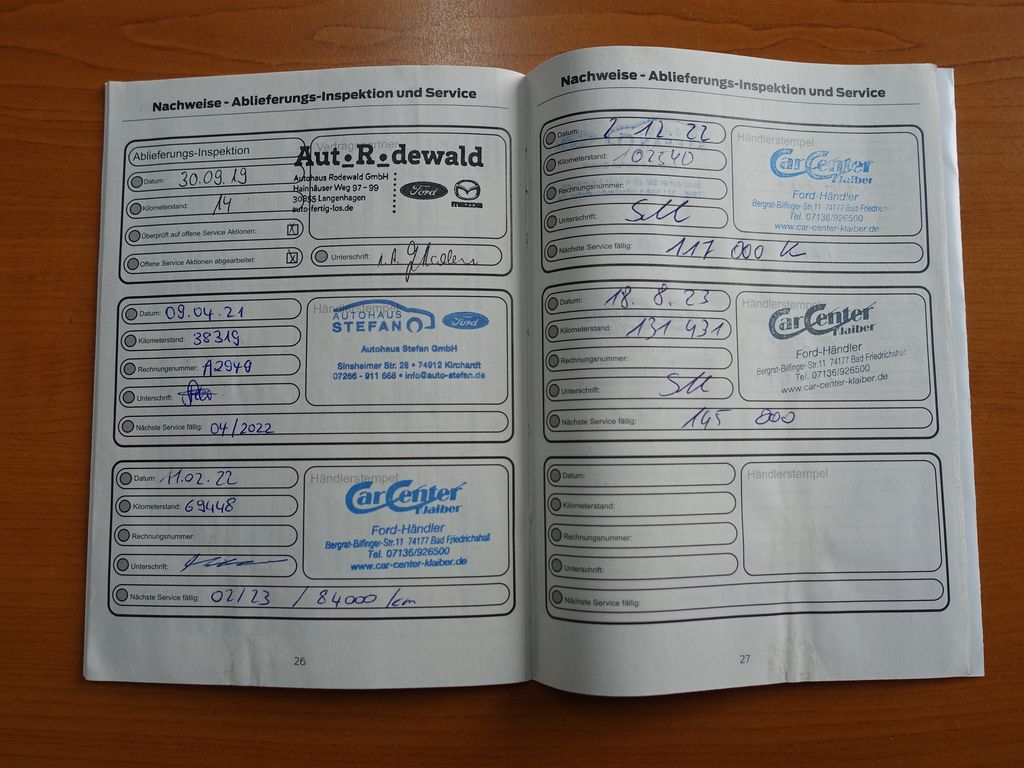 Nachweise - Ablieferungs-Inspektion und Service
Ablieferungs-Inspektion
Datum: 30.09.19
Kilometerstand: 14
Überprüft auf offene Service Aktionen: X
Offene Service Aktionen abgearbeitet: X
Vertragspartner
Autohaus Rodewald GmbH
Hainhäuser Weg 97 - 99
30855 Langenhagen
auto-fertig-los.de
Ford
mazda
Unterschrift: i.A.
Datum: 09.04.21
Kilometerstand: 38319
Rechnungsnummer: A2949
Unterschrift:
Händlerstempel
AUTOHAUS
STEFAN
Ford
Autohaus Stefan GmbH
Sinsheimer Str. 28 • 74912 Kirchardt
07266 - 911 668 • info@auto-stefan.de
Nächste Service fällig: 04/2022
Datum: 11.02.22
Kilometerstand: 69448
Rechnungsnummer:
Unterschrift:
Händlerstempel
CarCenter
Klaiber
Ford-Händler
Bergrat-Bilfinger-Str.11 74177 Bad Friedrichshall
Tel. 07136/926500
www.car-center-klaiber.de
Nächste Service fällig: 02/23 / 84000 km
26
Nachweise - Ablieferungs-Inspektion und Service
Datum: 2 12. 22
Kilometerstand: 102540
Rechnungsnummer:
Unterschrift:
Händlerstempel
CarCenter
Klaiber
Ford-Händler
Bergrat-Bilfinger-Str.11 74177 Bad Friedrich
Tel. 07136/926500
www.car-center-klaiber.de
Nächste Service fällig: 117 000 K
Datum: 18. 8. 23
Kilometerstand: 131 431
Rechnungsnummer:
Unterschrift:
Händlerstempel
CarCenter
Klaiber
Ford-Händler
Bergrat-Bilfinger-Str.11 74177 Bad Friedrichshall
Tel. 07136/926500
www.car-center-klaiber.de
Nächste Service fällig: 145 000
Datum:
Kilometerstand:
Rechnungsnummer:
Unterschrift:
Händlerstempel
Nächste Service fällig:
27